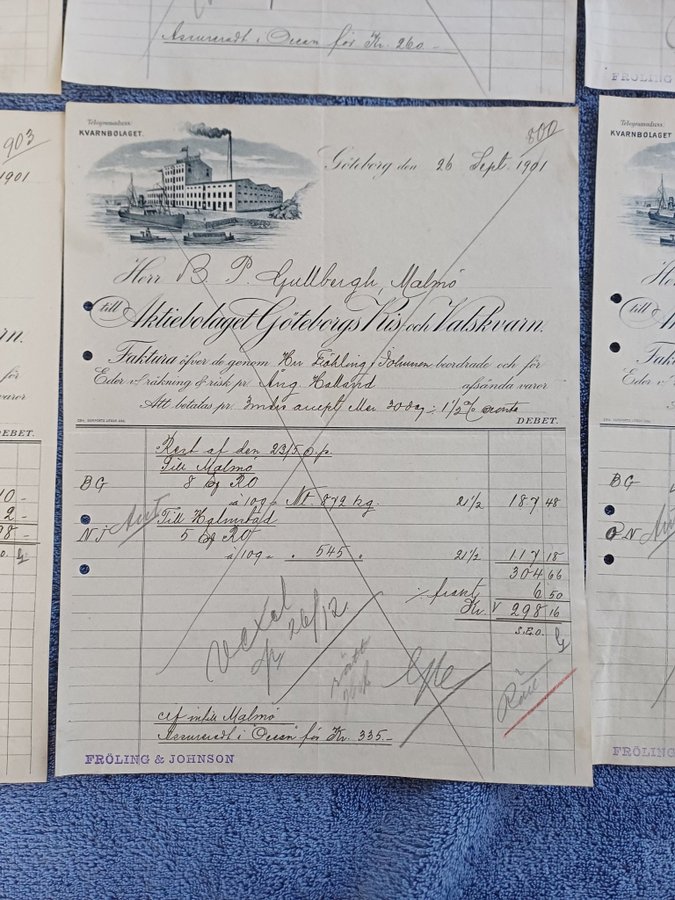 Assureradt i Ocean för Kr. 260.-
FRÖLING
903
1901
för
DEBET.
Telegramadress:
KVARNBOLAGET.
800
Göteborg den 26 Sept. 1901
Herr B. P. Gullbergh, Malmö
till Aktiebolaget Göteborgs Ris och Valskvarn.
Faktura öfver de genom Hrr Fröhling & Johnson beordrade och för
Eder v. räkning & risk pr Ång. Halland afsända varor
Att betalas pr. 3 mdrs accept Mer. 30 dag. 1 1/2 %
DEBET.
Rest af den 23/5 0 p.
Till Malmö
BG 8 RO
à 109 - Nt. 872 kg. 21 1/2 187 48
Till Halmstad
NJ 5 RO
à 109 - " 545 " 21 1/2 117 18
304 66
% frant 6 50
Kr. 298 16
s.E.o.
Vexel
pr 26/12
cif intill Malmö
Assureradt i Ocean för Kr. 335.-
FRÖLING & JOHNSON
Telegramadress:
KVARNBOLAGET
till
Faktu
Eder v.
BG
FRÖLING